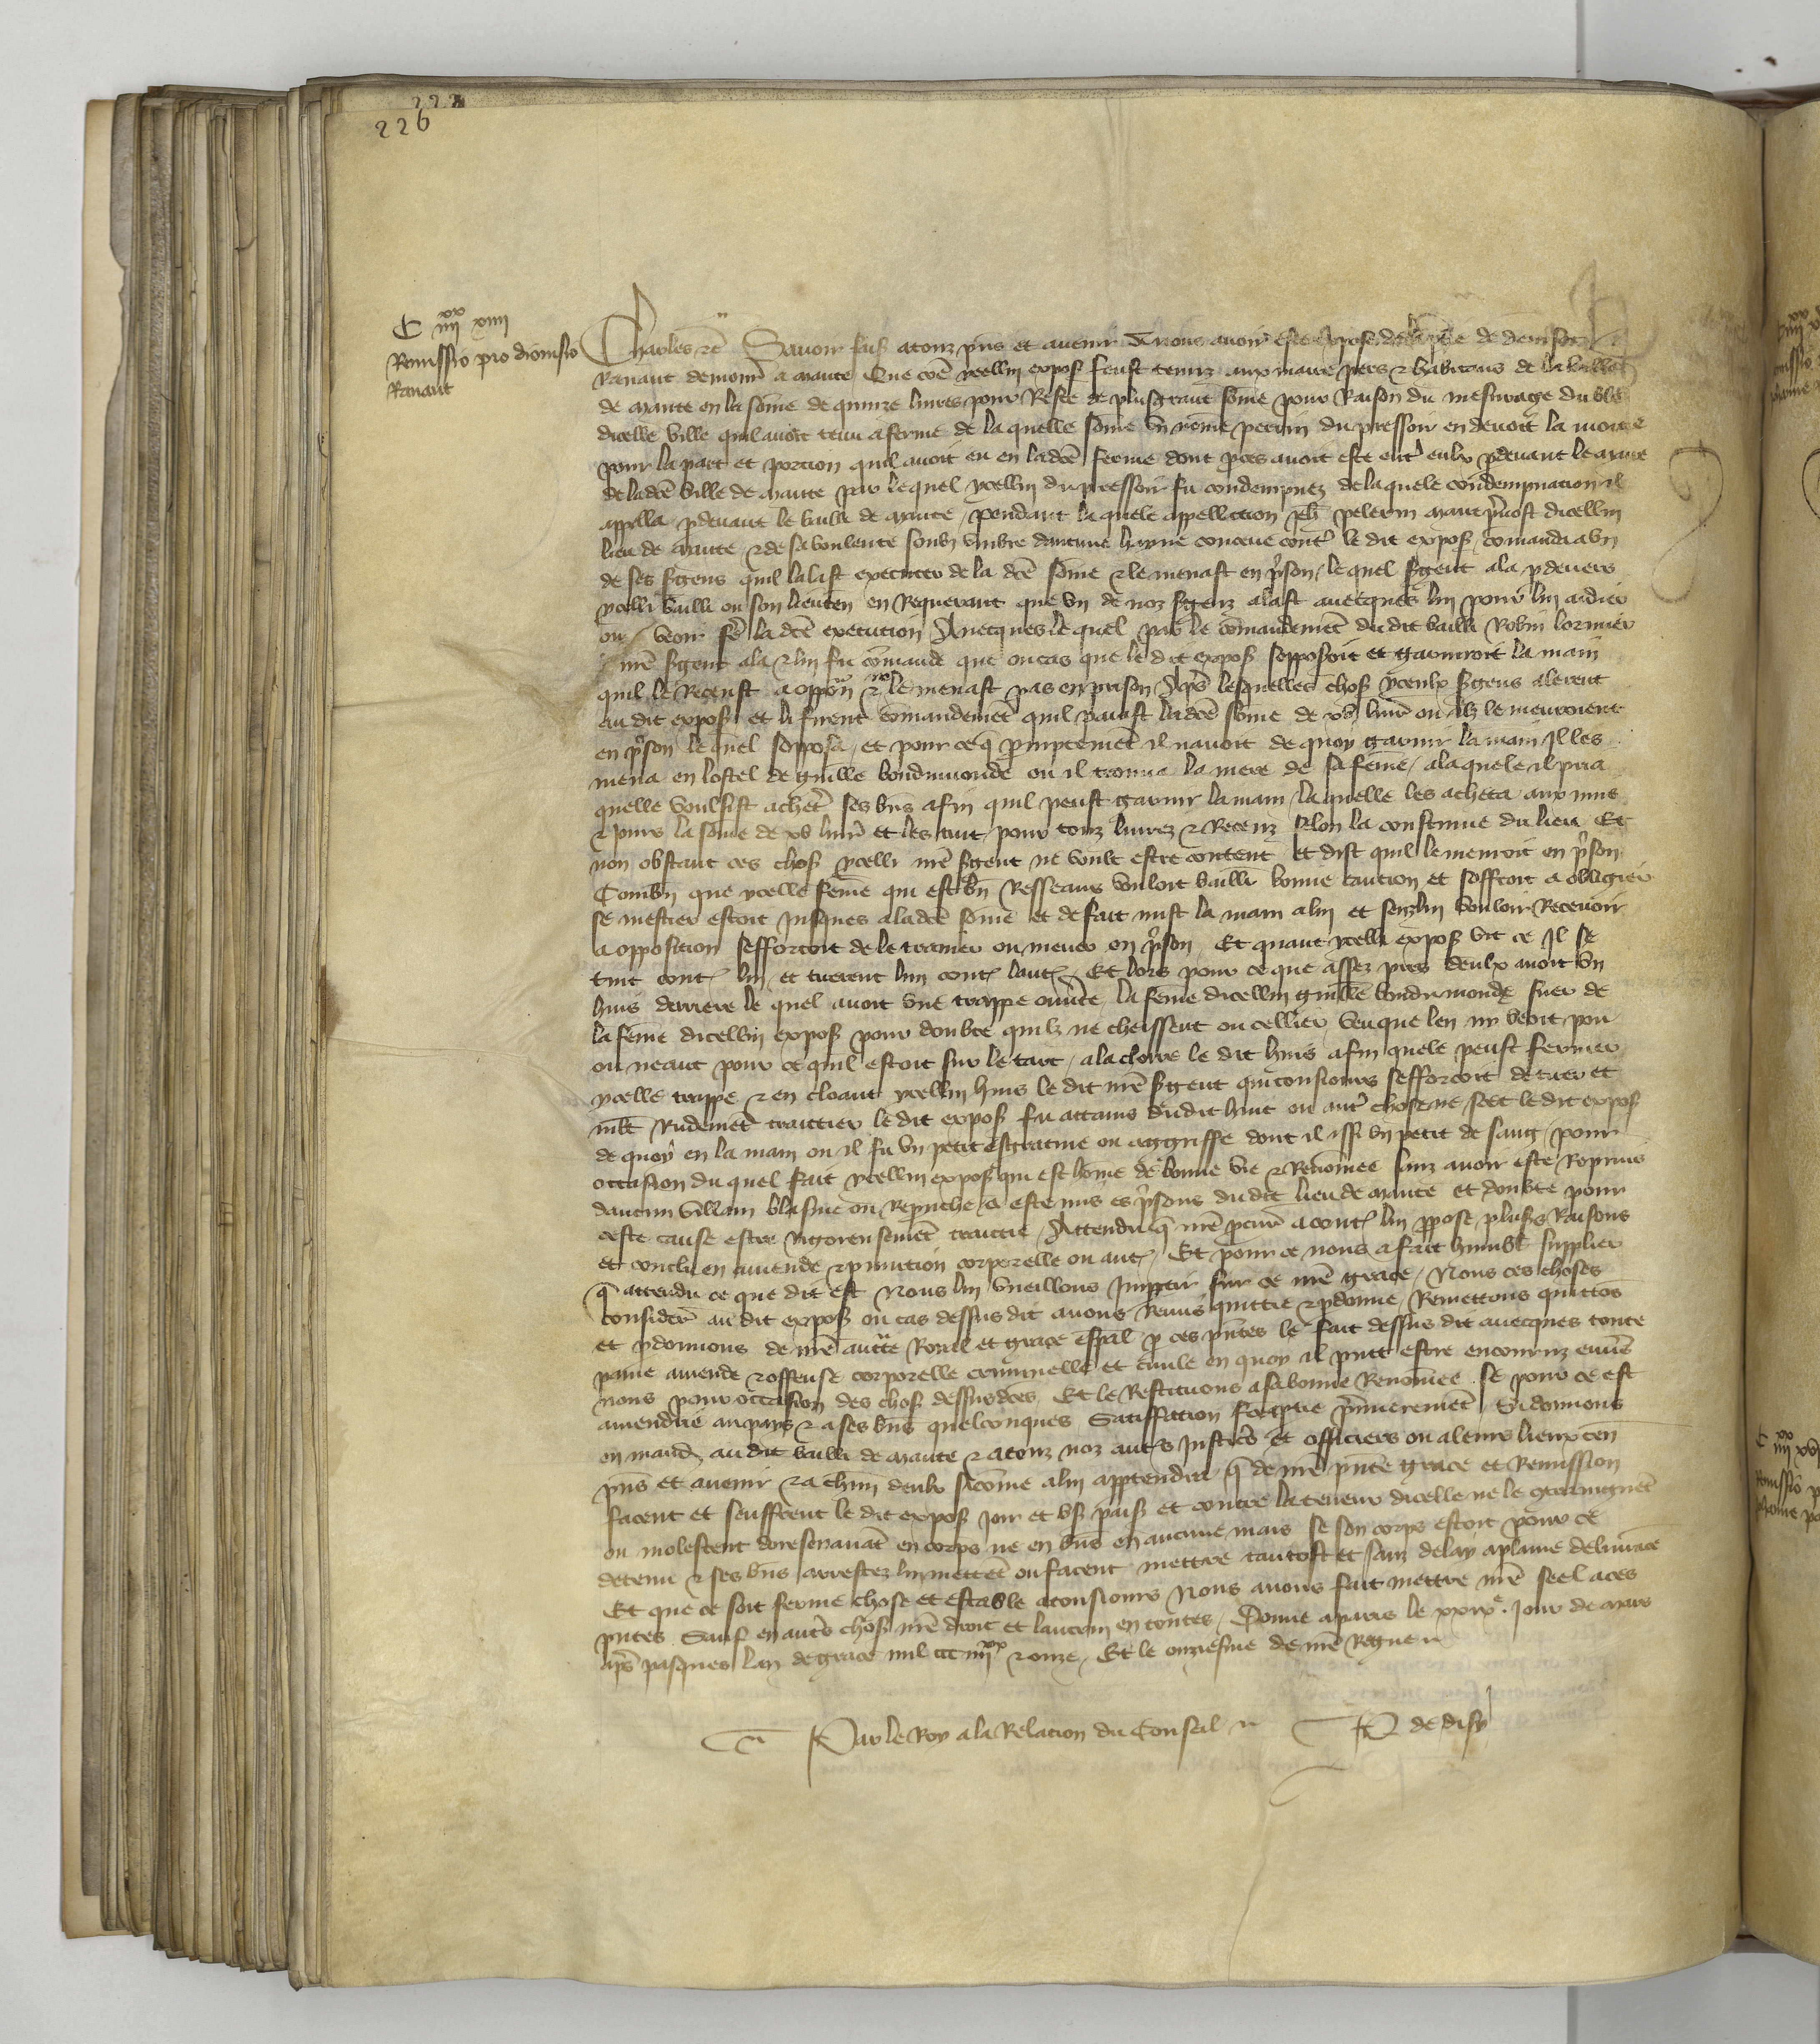 222
226
C iiii xx xiiii
Remissio pro dionisio
Ranaut
Charles etc Savoir fais a touz pns et avenir A nous avoir este expose de la ptie de denisot
Ranaut demour a mante Que coe ycellui expos feust tenuz aux maire pers et habitans de la ville
de mante en la some de quinze livres pour Reste de plusgrant some pour Raison du mesurage du ble
dicelle ville quil avoit tenu a ferme de la quelle some un nome perrin du pressoir en devoit la moitie
pour la part et porcion quil avoit eu en ladce ferme dont proces avoit este entr eulx pdevant le maire
de ladce ville de mante par le quel ycellui du pressoir fu condempnez de la quele condempnation il
appella pdevant le bailli de mante pendant la quele appellation Jeh pelerin mant pvost dicellui
lieu de mante et de sa voulente soubz umbre daucune hayne conceue contr le dit expos comanda a un
de ses sgens quil lalast executer de la dce some et le menast en pson le quel sgent ala pdevers
ycelli bailli ou son lieuten en Requerant que un de noz sgenz alast avecques lui pour lui aidier
ou veoir fe la dce execution Avecques le quel par le comandemet du dit bailli Robin lormier
nre sgent ala et lui fu comande que ou cas que le dit expos sopposeroit et garniroit la main
quil le Receust a oppon et ne le menast pas en prison Aps lesquelles chos yceulx sgens alerent
au dit expos et li firent comandemet quil paiast ladce some de xv livr ou ilz le menroient
en pson le quel sopposa et pour ce q promptemet il navoit de quoy garnir la main Il les
mena en lostel de guille bondrimonde ou il trouva la mere de sa feme a la quele il pria
quelle voulsist achet ses bns afin quil peust garnir la main la quelle les acheta aux uns
et pour la some de xv livr et les tint pour touz livrez et Receuz selon la coustume du lieu Et
non obstant ces chos ycelli nre sgent ne voult estre content et dist quil le menroit en pson
Combn que ycelle feme qui est bn Resseans vouloit baillr bonne caution et soffroit a obligier
se mestier estoit Jusques a ladce some et de fait mist la main a lui et senz lui vouloir Recevoir
a opposition sefforcoit de le trainer ou mener en pson Et quant ycelli expos vit ce Il se
tint contr lui et tirerent lun contr lautr Et lors pour ce que assez pres deulx avoit un
huis derriere le quel avoit une trappe ouvte la feme dicellui guille bondrimonde suer de
la feme dicellui expos pour doubte quilz ne cheissent ou cellier veu que len ny veoit pou
ou neant pour ce quil estoit sur le tart ala clorre le dit huis afin quele peust fermer
ycelle trappe et en cloant ycellui huis le dit nre sgent qui tousiours sefforcoit de tirer et
mlt Rudemet traittier le dit expos fu attains du dit huis ou autr chose ne scet le dit expos
de quoy en la main ou il fu un petit esgratine ou aggriffe dont il issi un petit de sang pour
occasion du quel fait ycellui expos qui est home de bonne vie et Renomee sanz avoir este Reprins
daucun villain blasme ou Reprouche a este mis es psons du dit lieu de mante et doubte pour
ceste cause estre rigoreusemet traittie Attendu q nre pcur a contr lui ppose plus Raisons
et conclu en amende et punition corporelle ou autr Et pour ce nous a fait humblt supplier
q attendu ce que dit est Nous lui vueillons Impartir sur ce nre grace Nous ces choses
consider au dit expos ou cas dessus dit avons Remis quittie et pdonne Remettons quittos
et pdonnons de nre auctte Roial et grace espal p ces pntes le fait dessus dit avecques toute
paine amende et offense corporelle criminelle et civile en quoy il puet estre encouruz envs
nous pour occasion des chos dessusdces Et le Restituons a sa bonne Renomee se pour ce est
amendrie au pays et a ses bns quelconques Satiffation fe a ptie pmieremet Si donnons
en mand au dit bailli de mante et a touz noz autrs Justicis et officiers ou a leurs lieuxten
pns et avenir et a chun deulx sicome a lui apptendra q de nre pnte grace et Remission
facent et seuffrent le dit expos joir et us pais et contre la teneur dicelle ne le contraignet
ou molestent doresenavat en corps ne en bns en aucune mais se son corps estoit pour ce
detenu et ses bns arrestez lui mettet ou facent mettre tantost et sanz delay a plaine delivrace
Et que ce soit ferme chose et estable a tousiours Nous avons fait mettre nre seel a ces
pntes Sauf en autrs chos nre droit et lautrui en toutes Donne a paris le xxixe Jour de mars
aps pasques lan de grace mil ccc iiii xx et onze Et le onziesme de nre Regne
Par le Roy a la Relacion du Conseil P de disy